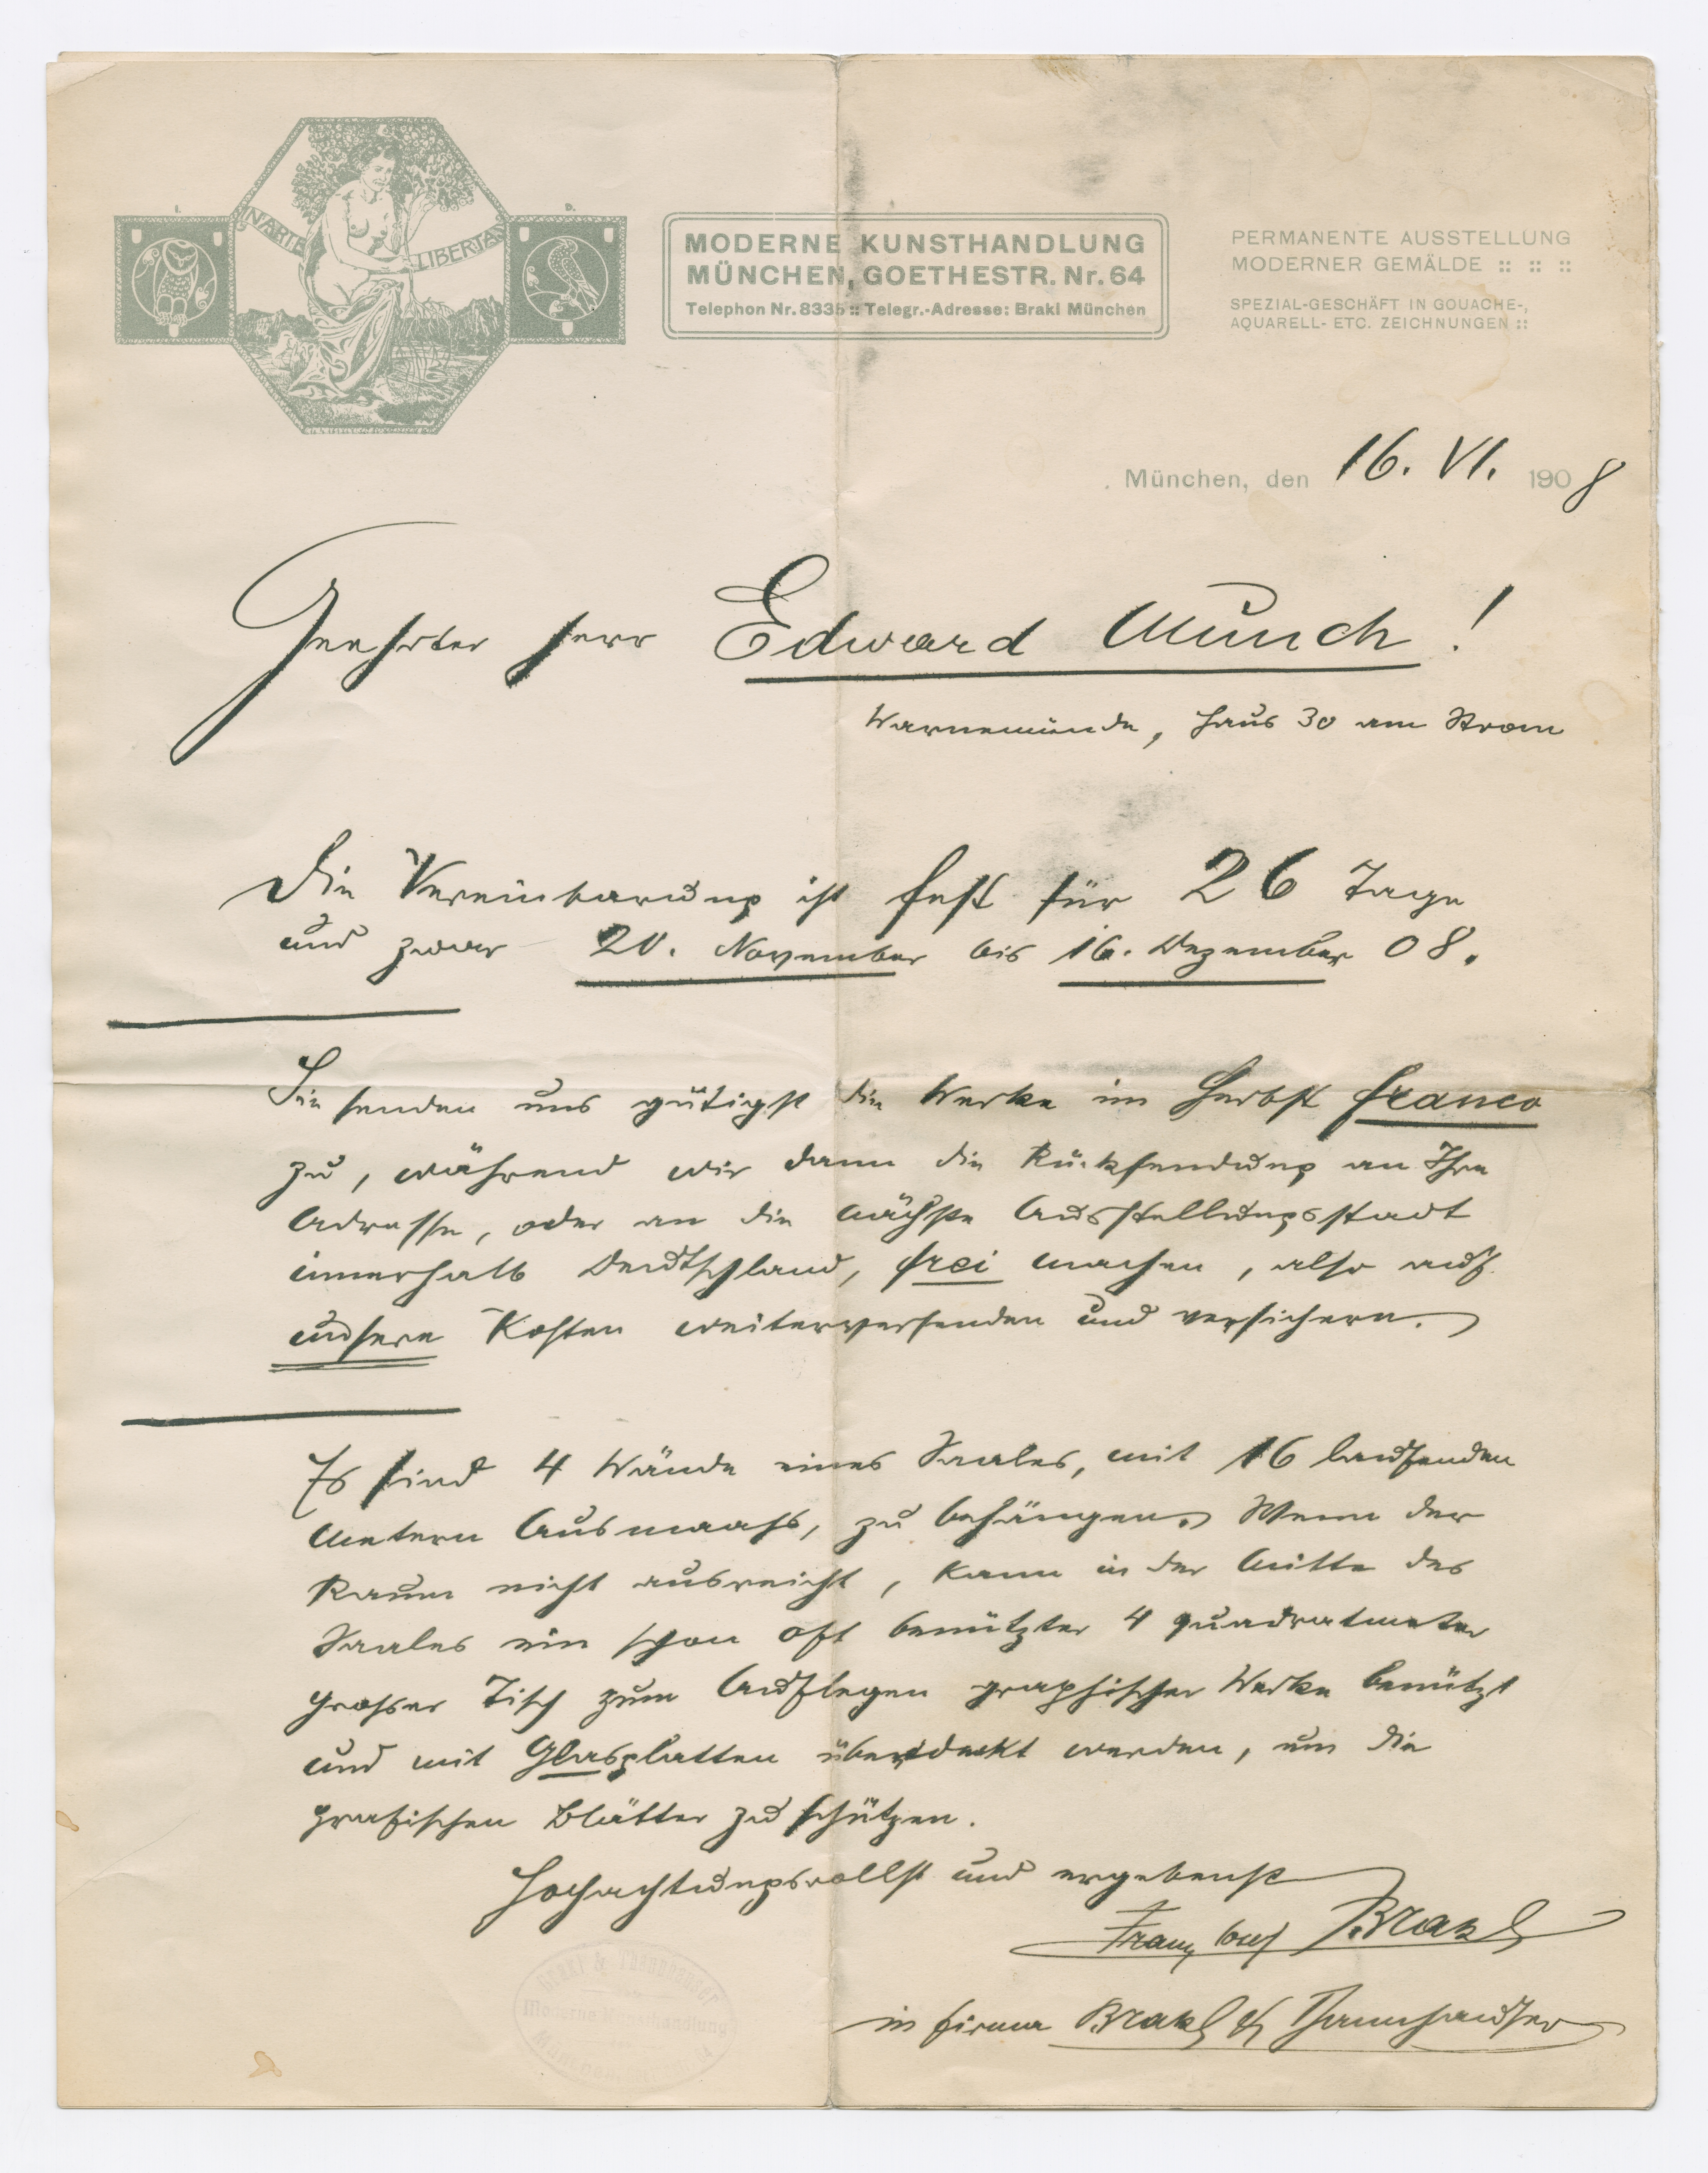 I. D.
IN ARTE LIBERTAS
MODERNE KUNSTHANDLUNG
MÜNCHEN, GOETHESTR. Nr. 64
Telephon Nr. 8335 :: Telegr.-Adresse: Brakl München
PERMANENTE AUSSTELLUNG
MODERNER GEMÄLDE :: :: ::
SPEZIAL-GESCHÄFT IN GOUACHE-,
AQUARELL- ETC. ZEICHNUNGEN ::
München, den 16. VI. 1908
Geehrter Herr Edward Munch!
Warnemünde, Haus 30 am Strom
Die Vereinbarung ist fest für 26 Tage
und zwar 20. November bis 16. Dezember 08.
Sie senden uns gütigst die Werke im Herbst franco
zu, während wir dann die Rücksendung an Ihre
Adresse, oder an die nächste Ausstellungsstadt
innerhalb Deutschland, frei machen, also auf
unsere Kosten weiterversenden und versichern.
Es sind 4 Wände eines Saales, mit 16 laufenden
Metern Ausmaass, zu behängen. Wenn der
Raum nicht ausreicht, kann in der Mitte des
Saales ein schon oft benützter 4 quadratmeter
grosser Tisch zum Auflegen graphischer Werke benützt
und mit Glasplatten überdeckt werden, um die
grafischen Blätter zu schützen.
Hochachtungsvollst und ergebenst
Franz Josef Brakl
in Firma Brakl & Thannhauser
Brakl & Thannhauser
Moderne Kunsthandlung
München